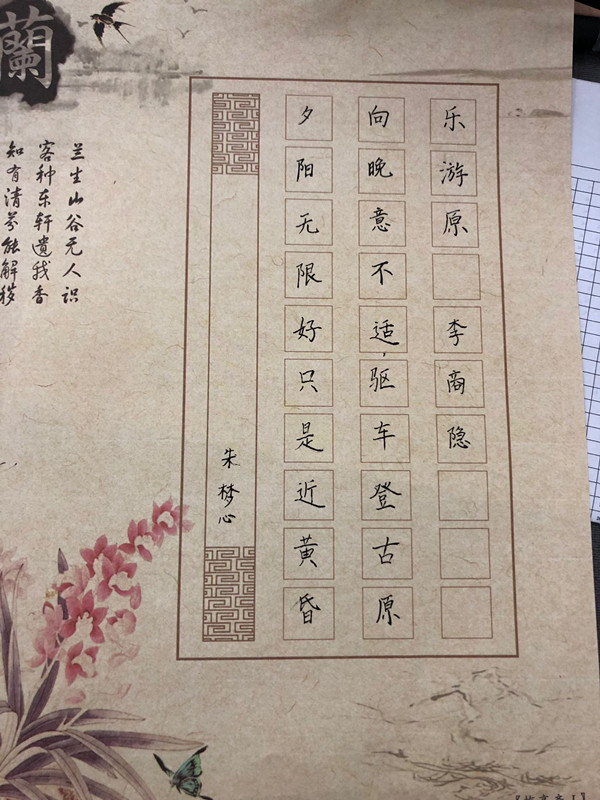 乐游原 李商隐
向晚意不适,驱车登古原
夕阳无限好只是近黄昏
朱梦心
蘭
兰生山谷无人识
客种东轩遗我香
知有清芬能解秽